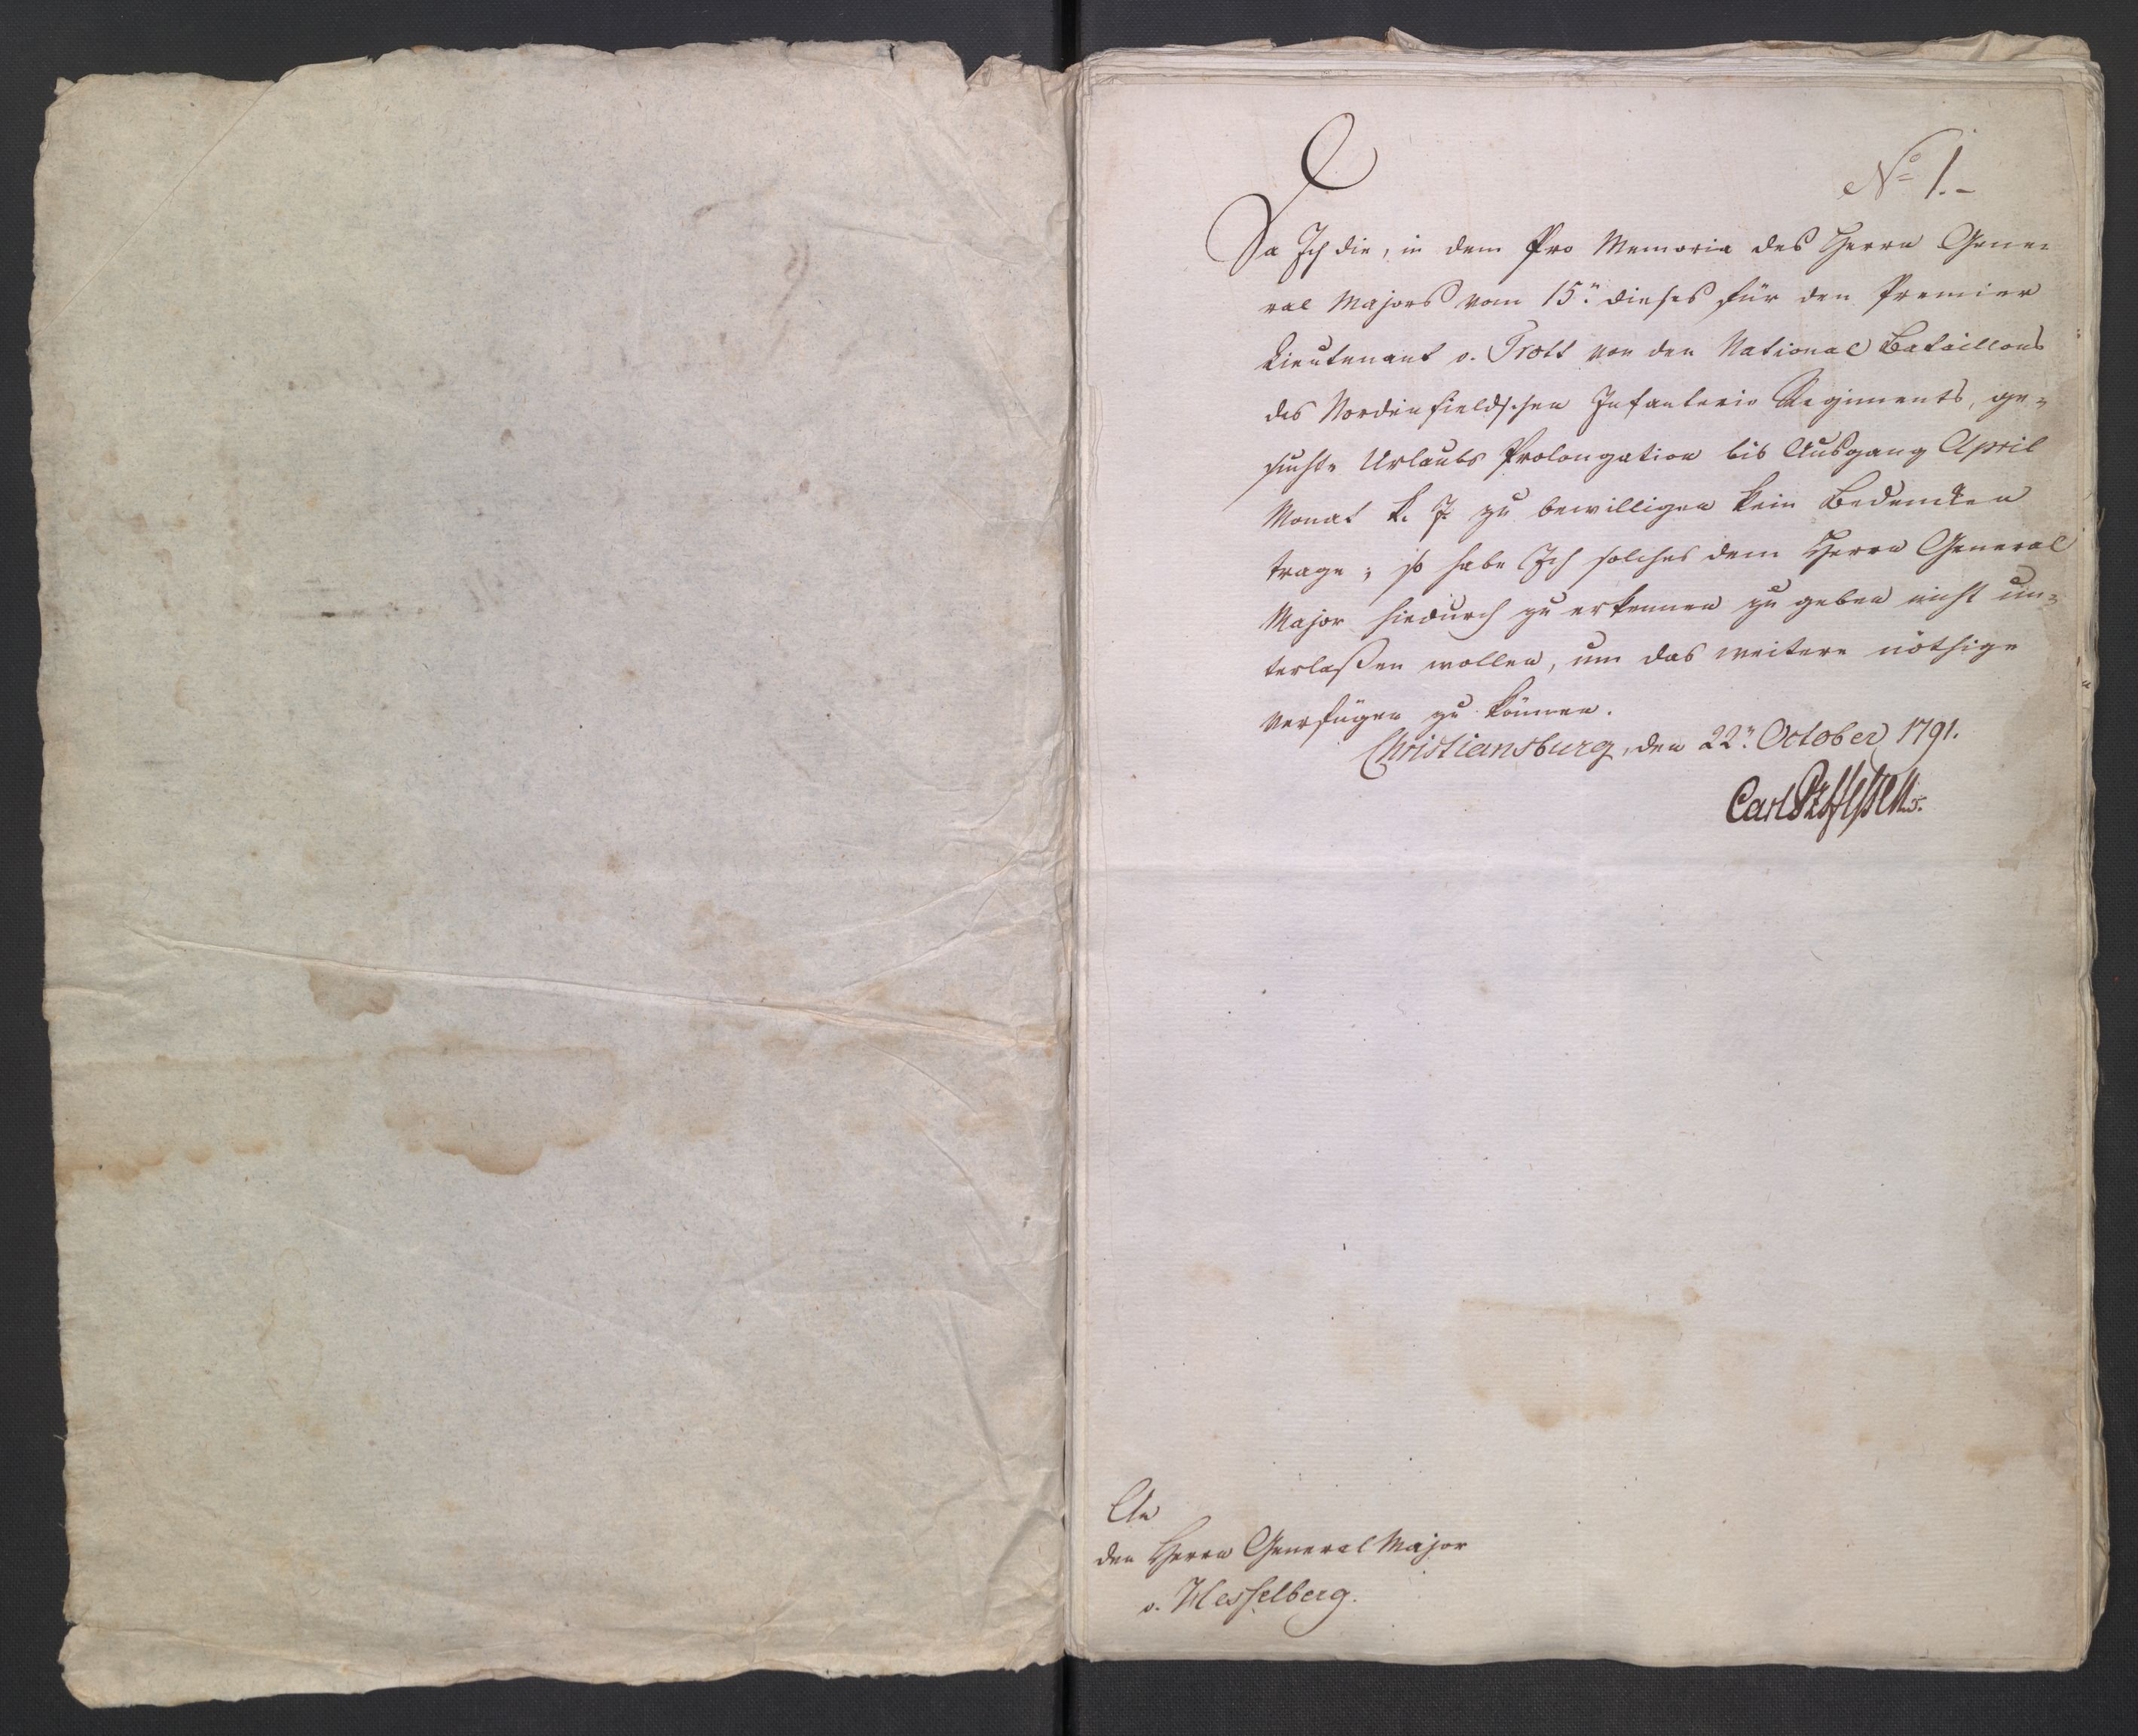 No 1.-
Da Ich die, in dem Pro Memoria des Herrn Gene-
ral Majors vom 15ten dieses für den Premier
Lieutenant v. Trott von den National Bataillons
des Nordenfieldschen Infanterie Regiments, ge-
suchte Urlaubs Prolongation bis Ausgang April
Monat k. J. zu bewilligen kein Bedencken
trage; so habe Ich solches dem Herrn General
Major hiedurch zu erkennen zu geben nicht un-
terlaßen wollen, um das weitere nöthige
verfügen zu können.
Christiansburg, den 22ten October 1791.
Carl PzHessen
An
den Herrn General Major
v. Hesselberg.